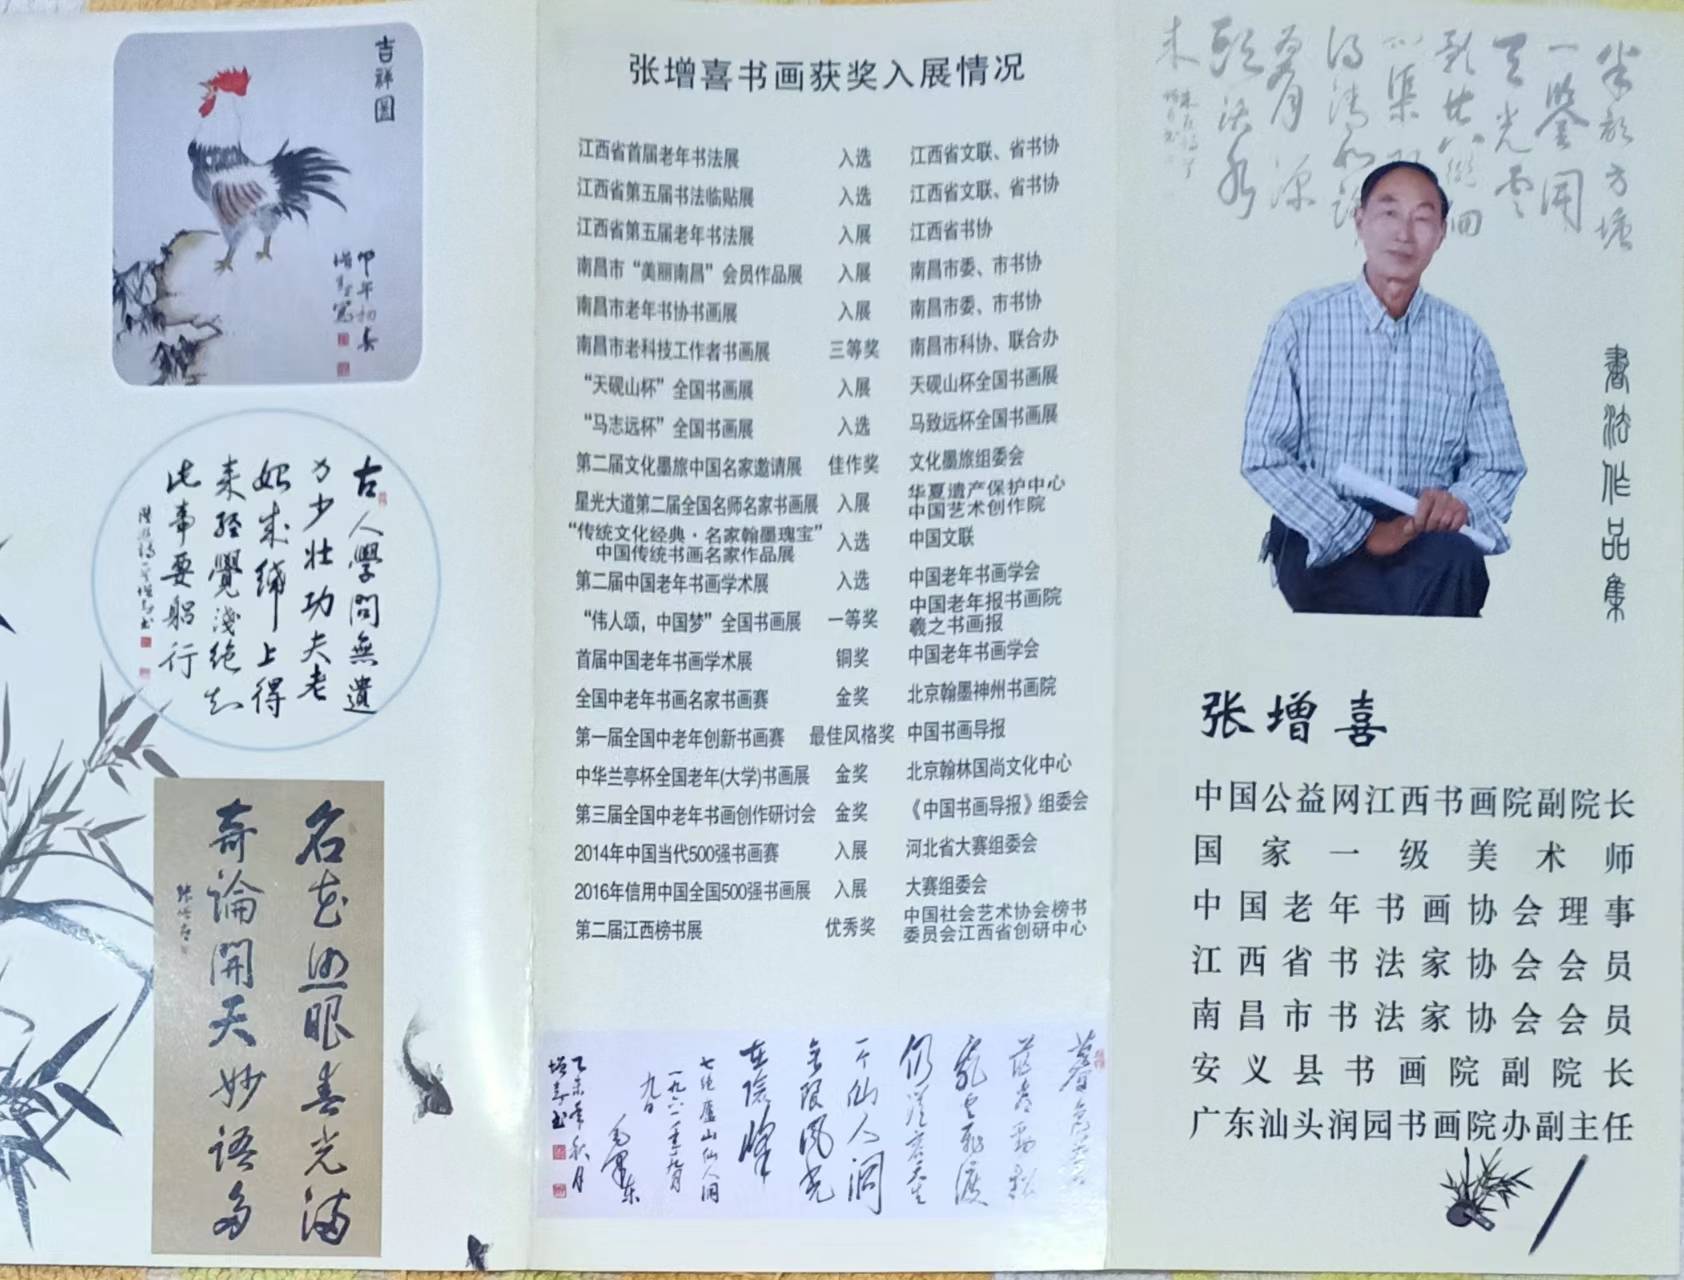 吉祥圖
甲午年初春
增喜寫
古人學問無遺
力少壯功夫老
始成紙上得
來終覺淺絕知
此事要躬行
陸游詩一首增喜書
名花照眼春光滿
奇論開天妙語多
张增喜
张增喜书画获奖入展情况
江西省首届老年书法展 入选 江西省文联、省书协
江西省第五届书法临贴展 入选 江西省文联、省书协
江西省第五届老年书法展 入展 江西省书协
南昌市“美丽南昌”会员作品展 入展 南昌市委、市书协
南昌市老年书协书画展 入展 南昌市委、市书协
南昌市老科技工作者书画展 三等奖 南昌市科协、联合办
“天砚山杯”全国书画展 入展 天砚山杯全国书画展
“马志远杯”全国书画展 入选 马致远杯全国书画展
第二届文化墨旅中国名家邀请展 佳作奖 文化墨旅组委会
星光大道第二届全国名师名家书画展 入展 华夏遗产保护中心
中国艺术创作院
“传统文化经典·名家翰墨瑰宝”
中国传统书画名家作品展 入选 中国文联
第二届中国老年书画学术展 入选 中国老年书画学会
“伟人颂，中国梦”全国书画展 一等奖 中国老年报书画院
羲之书画报
首届中国老年书画学术展 铜奖 中国老年书画学会
全国中老年书画名家书画赛 金奖 北京翰墨神州书画院
第一届全国中老年创新书画赛 最佳风格奖 中国书画导报
中华兰亭杯全国老年(大学)书画展 金奖 北京翰林国尚文化中心
第三届全国中老年书画创作研讨会 金奖 《中国书画导报》组委会
2014年中国当代500强书画赛 入展 河北省大赛组委会
2016年信用中国全国500强书画展 入展 大赛组委会
第二届江西榜书展 优秀奖 中国社会艺术协会榜书
委员会江西省创研中心
暮色蒼茫看
勁松
亂雲飛渡
仍從容天生
一个仙人洞
无限风光
在险峰
七绝庐山仙人洞
一九六一年九月
九日
毛泽东
乙未年秋月
增喜书
半亩方塘
一鉴開
天光雲
影共徘徊
问渠那
得清如許
為有源
頭活水
来
朱熹詩一首
增喜书
書法作品集
张增喜
中国公益网江西书画院副院长
国家一级美术师
中国老年书画协会理事
江西省书法家协会会员
南昌市书法家协会会员
安义县书画院副院长
广东汕头润园书画院办副主任